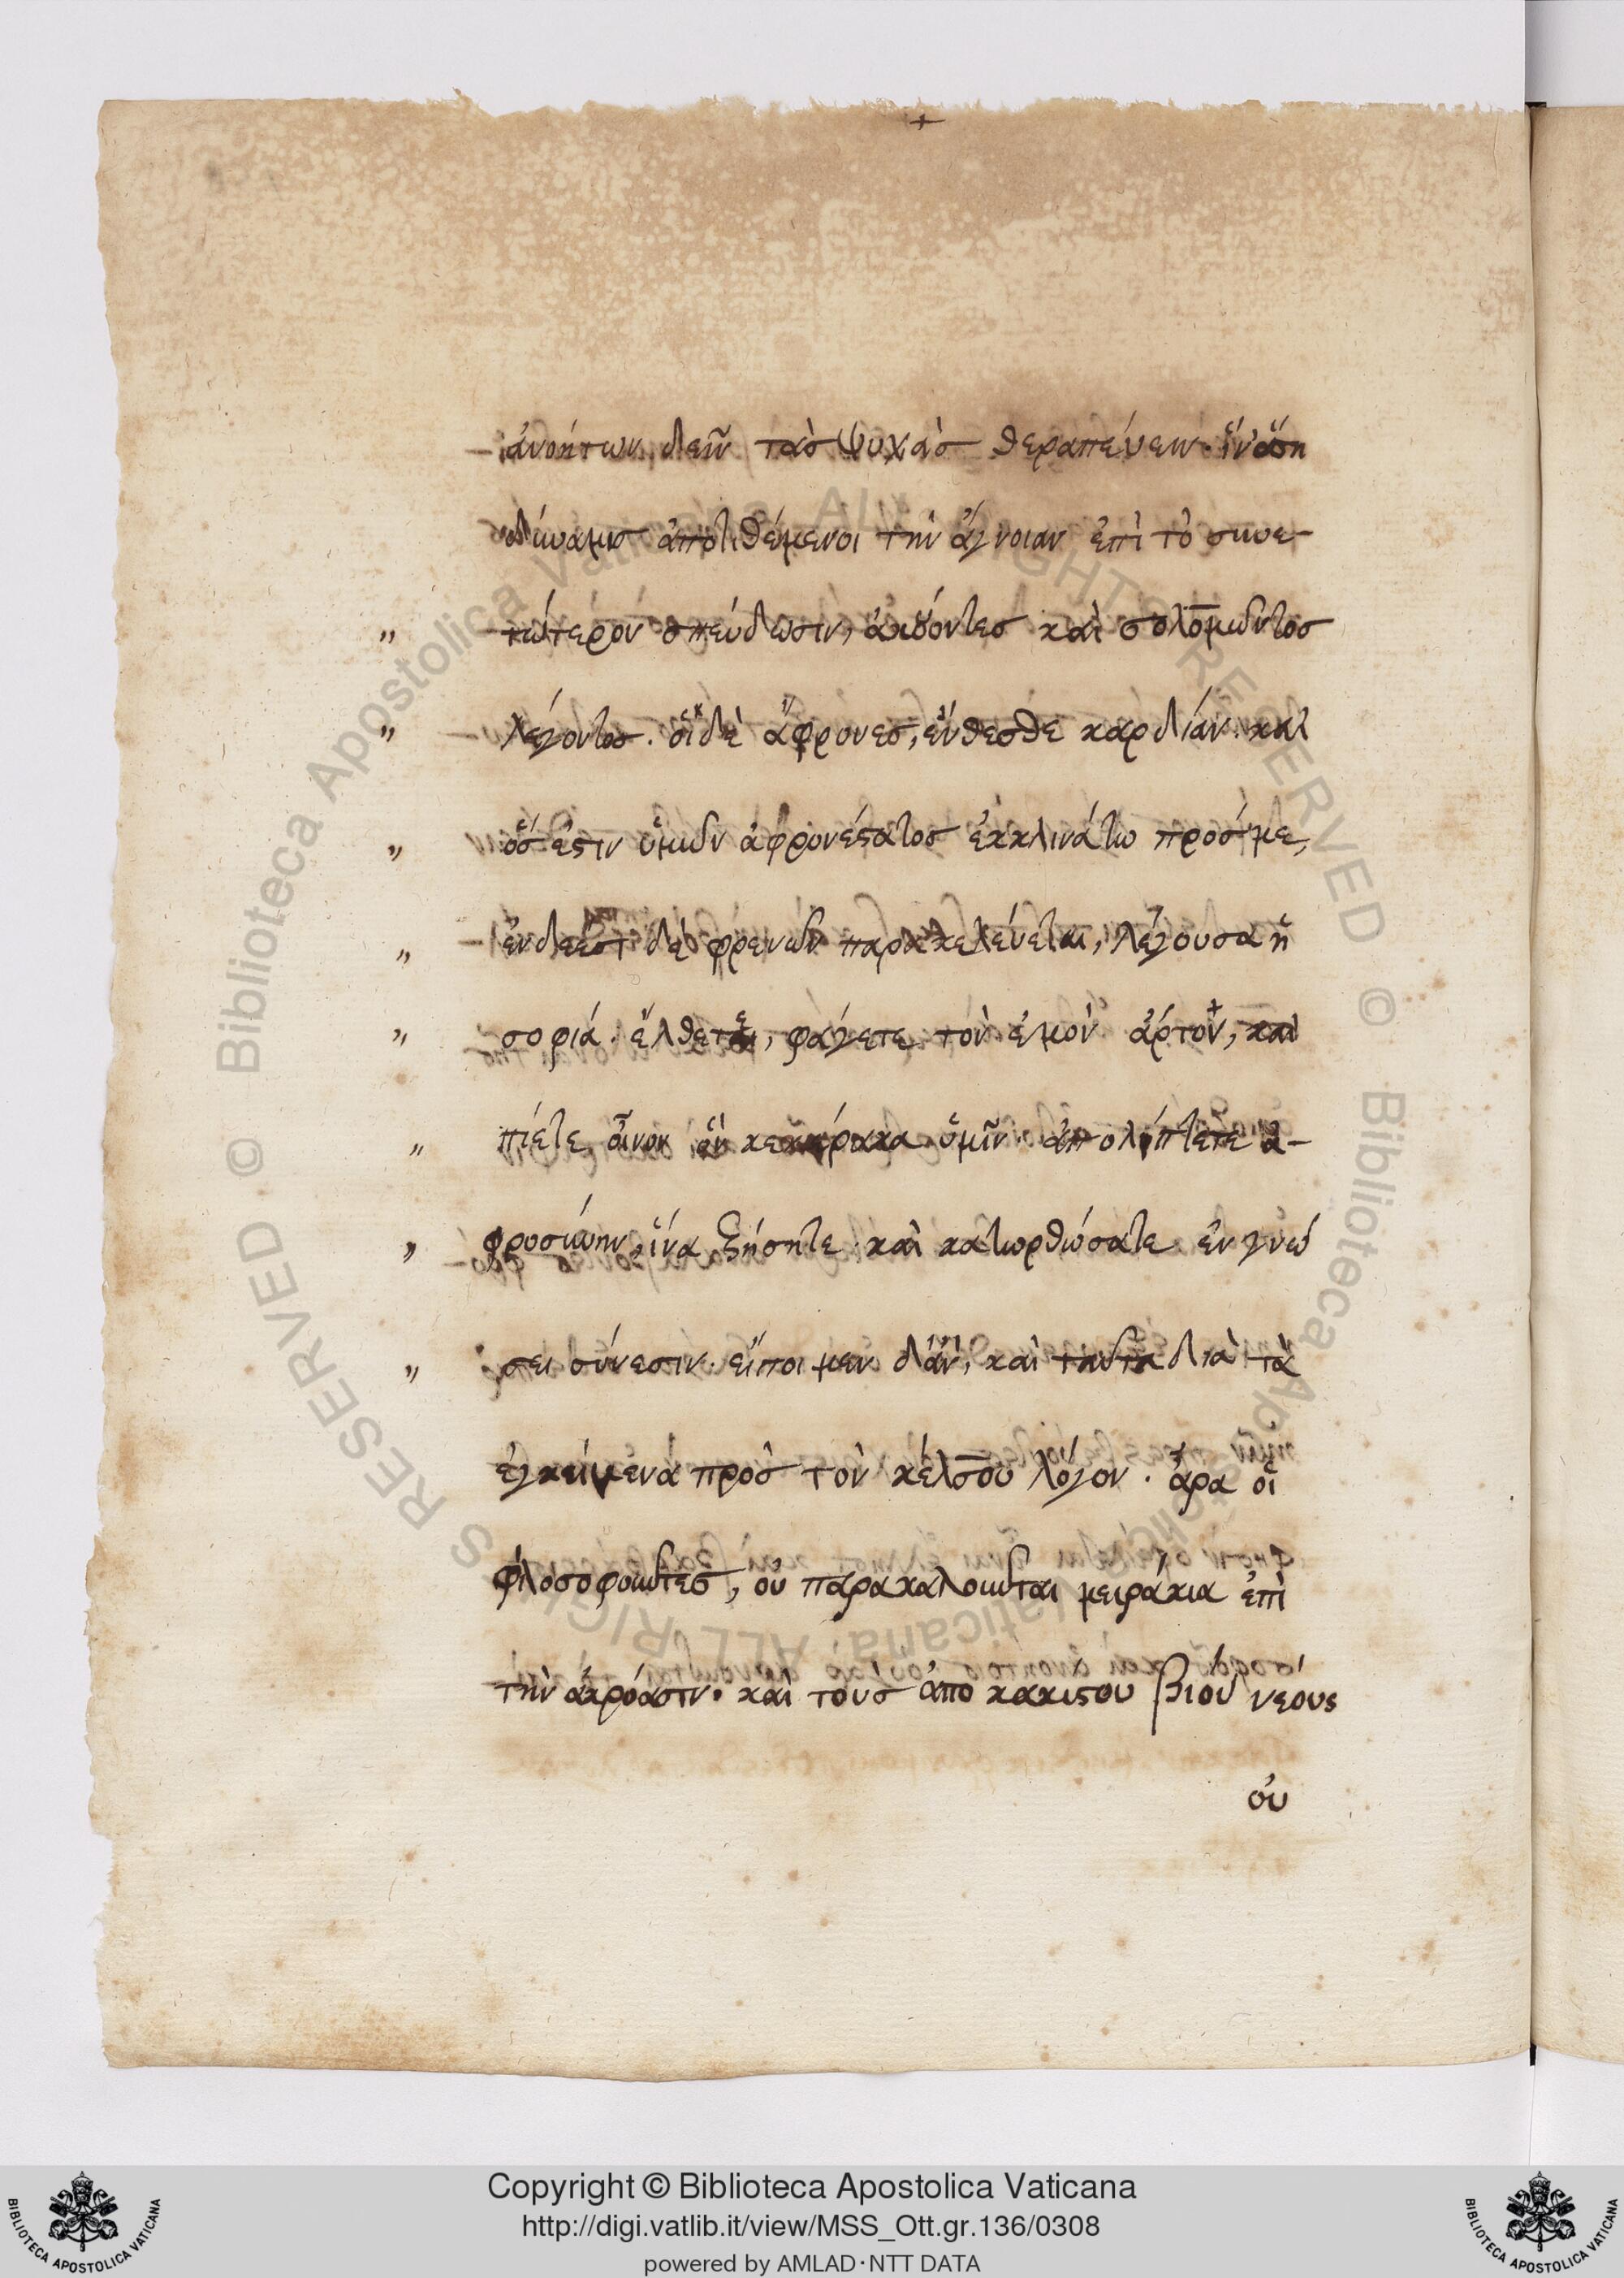 ἀνοήτων δεῖν τὰσ ψυχὰσ θεραπεύειν· ἵνὅση
δύναμισ ἀποτιθέμενοι τὴν ἄγνοιαν ἐπὶ τὸ συνε-
τώτερον σπεύδωσιν, ἀκούοντεσ καὶ σολομῶντοσ
λέγοντοσ. οἱ δὲ ἄφρονεσ, ἔνθεσθε καρδίαν· καὶ
ὅσ ἐστιν ὑμῶν ἀφρονέστατοσ ἐκκλινάτω πρόσ με,
ἐνδεέσι δὲ φρενῶν παρακελεύεται, λέγουσα ἡ
σοφιά. ἔλθετε, φάγετε τὸν ἐμὸν ἄρτον, καὶ
πίετε οἶνον ὃν κεκέρακα ὑμῖν· ἀπολείπετε ἀ-
φροσύνην, ἵνα ζήσητε· καὶ κατωρθώσατε ἐν γνώ
σει σύνεσιν· εἴποιμεν δἂν, καὶ ταῦτα διὰ τὰ
ἐγκείμενα πρὸσ τὸν κέλσου λόγον. ἆρα οἱ
φιλοσοφοῦντεσ, οὐ παρακαλοῦνται μειράκια ἐπὶ
τὴν ἀκρόασιν. καὶ τοὺσ ἀπὸ κακίστου βίου νέους
οὐ
Copyright © Biblioteca Apostolica Vaticana
http://digi.vatlib.it/view/MSS_Ott.gr.136/0308
powered by AMLAD·NTT DATA
BIBLIOTECA APOSTOLICA VATICANA
BIBLIOTECA APOSTOLICA VATICANA